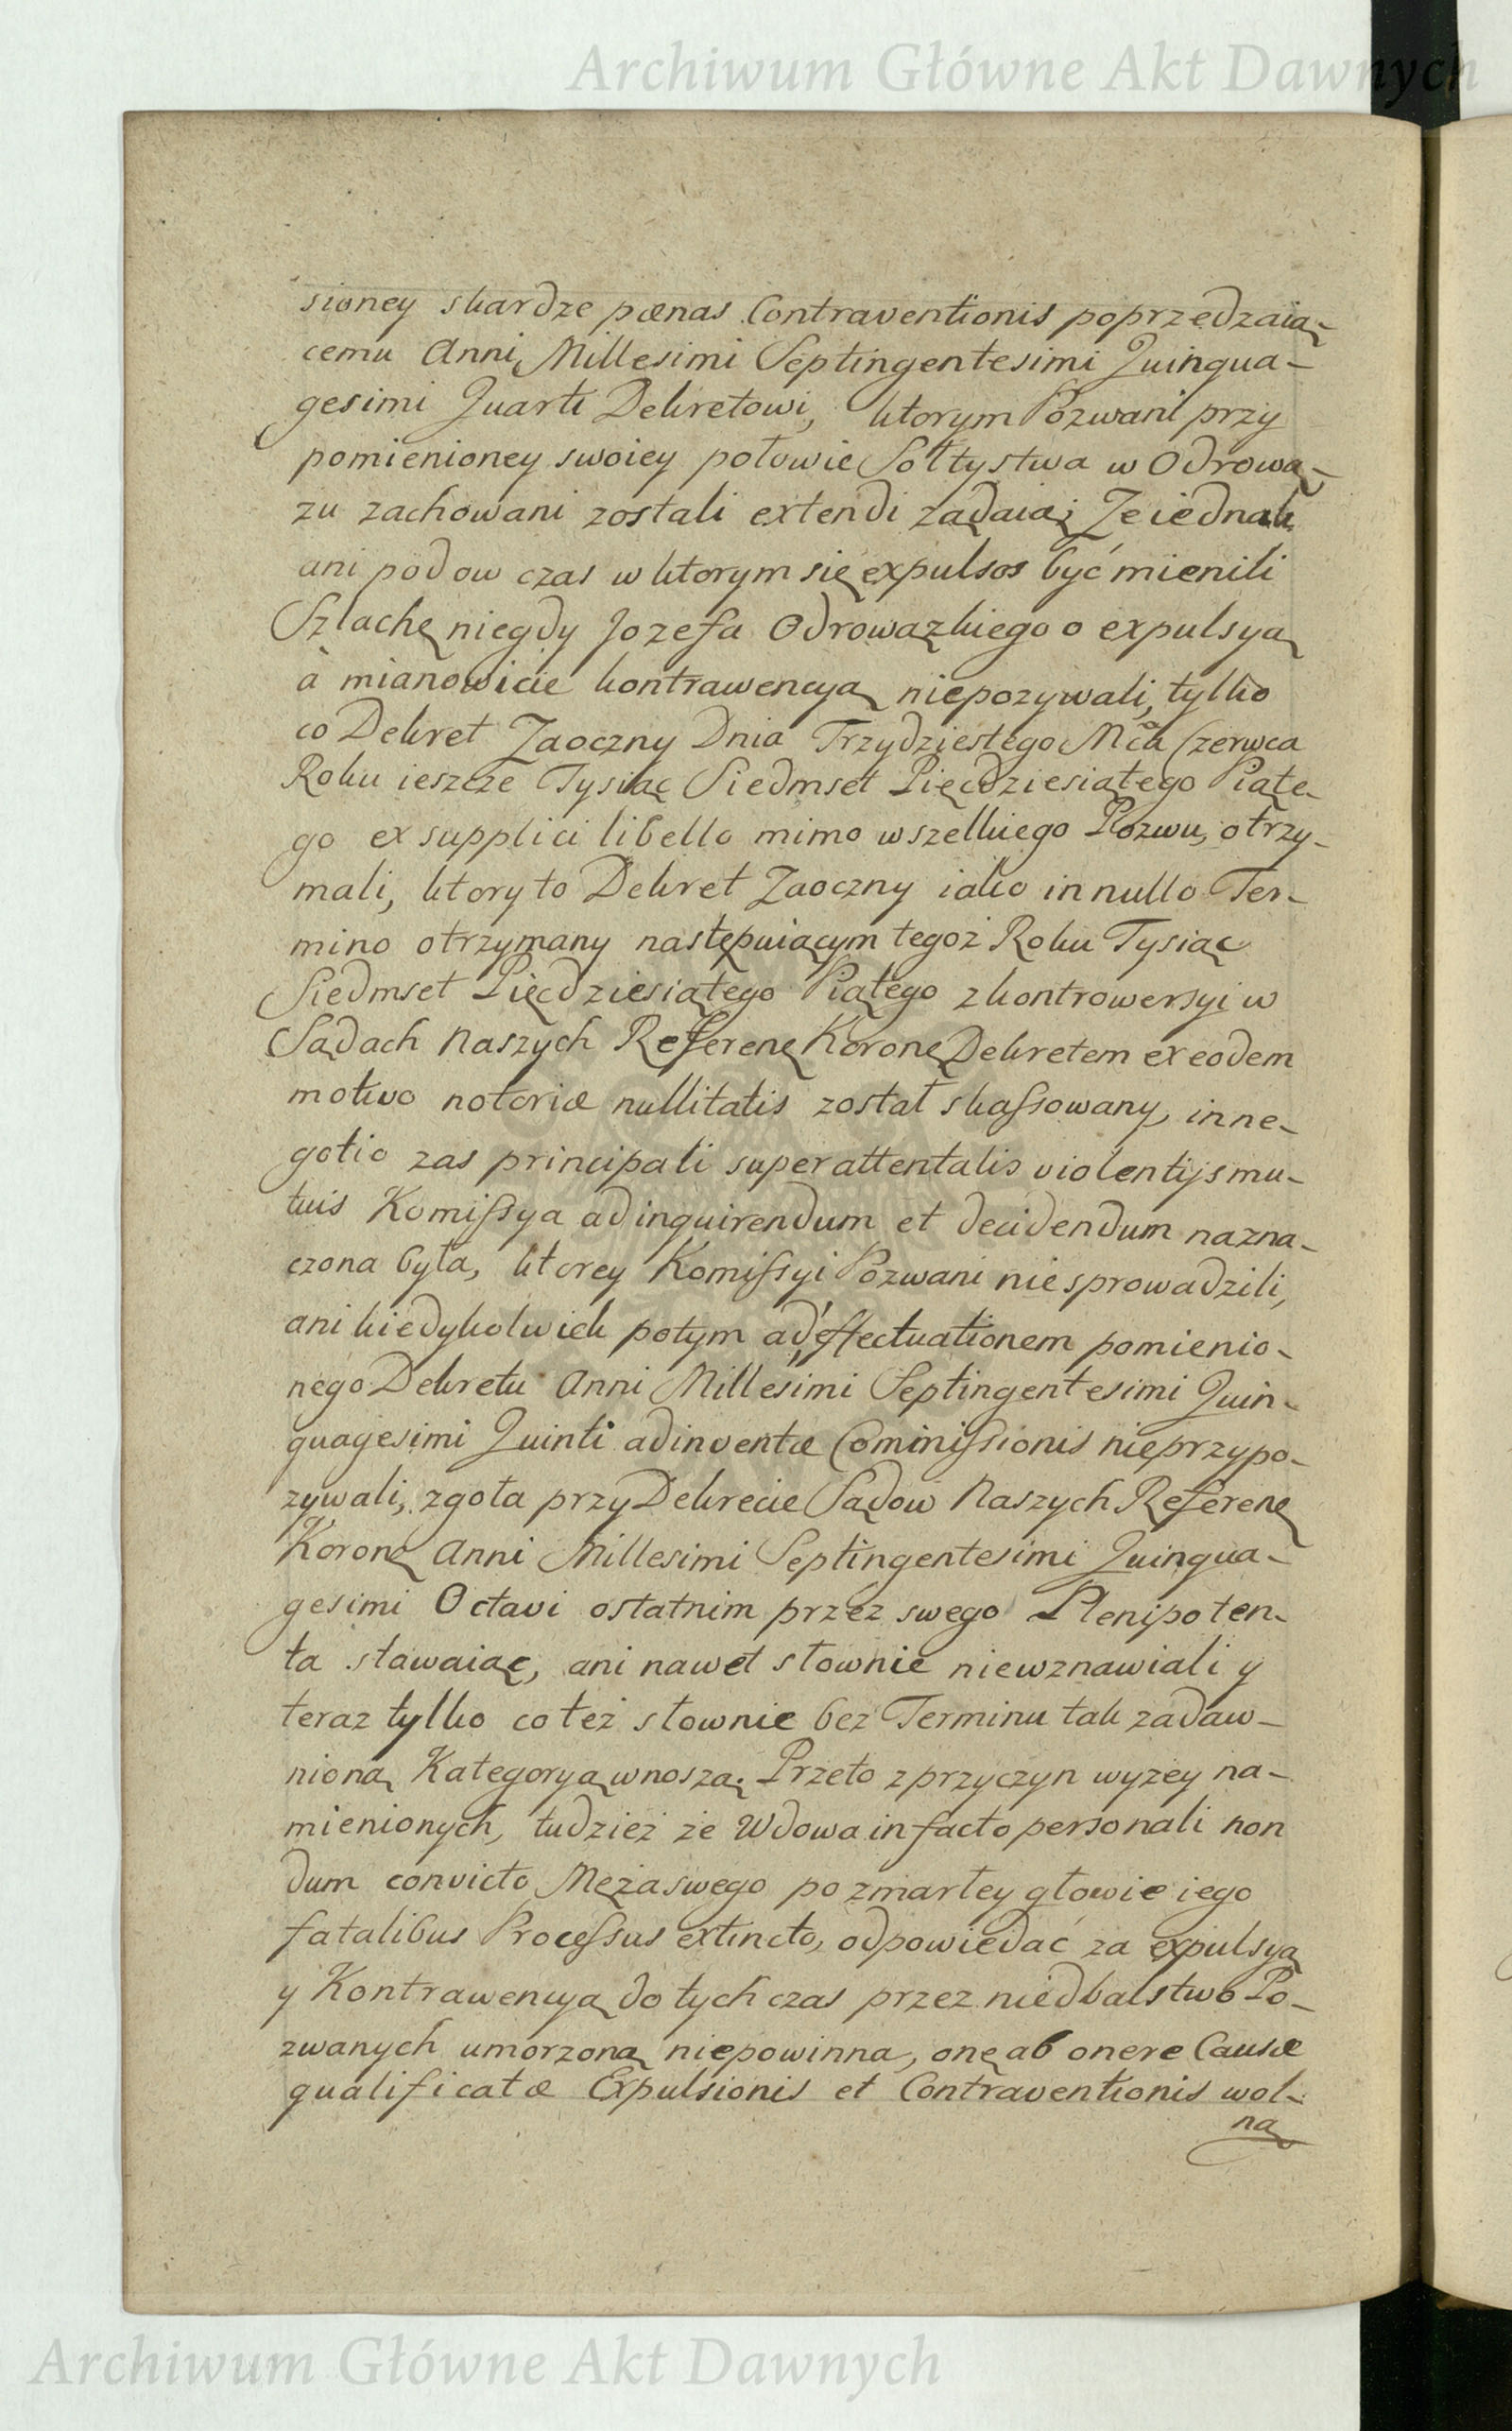 Archiwum Główne Akt Dawnych
sioney skardze pænas Contraventionis poprzedzaią-
cemu Anni Millesimi Septingentesimi Quinqua-
gesimi Quarti Dekretowi, ktorym Pozwani przy
pomienioney swoiey połowie Sołtystwa w Odrową-
zu zachowani zostali extendi ządaią; Ze iednak
ani pod ow czas w ktorym się expulsos być mienili
Szlachę niegdy Jozefa Odrowązkiego o expulsyą
à mianowicie kontrawencyą niepozywali, tylko
co Dekret Zaoczny Dnia Trzydziestego Mca Czerwca
Roku ieszcze Tysiąc Siedmset Pięcdziesiątego Piąte-
go ex supplici libello mimo wszelkiego Pozwu, otrzy-
mali, ktory to Dekret Zaoczny iako in nullo Ter-
mino otrzymany następuiącym tegoż Roku Tysiąc
Siedmset Pięcdziesiątego Piątego z kontrowersyi w
Sądach Naszych Referenę Koronę Dekretem ex eodem
motivo notoriæ nullitatis został skassowany, in ne-
gotio zas principali super attentatis violentijs mu-
tuis Komissya ad inquirendum et decidendum nazna-
czona była, ktorey Komissyi Pozwani nie sprowadzili,
ani kiedykolwiek potym ad effectuationem pomienio-
nego Dekretu Anni Millesimi Septingentesimi Quin-
quagesimi Quinti adinventæ Commissionis nieprzypo-
zywali, zgoła przy Dekrecie Sądow Naszych Referenę
Koronę Anni Millesimi Septingentesimi Quinqua-
gesimi Octavi ostatnim przez swego Plenipoten-
ta stawaiąc, ani nawet słownie niewznawiali y
teraz tylko co też słownie bez Terminu tak zadaw-
nioną Kategoryą wnoszą. Przeto z przyczyn wyzey na-
mienionych, tudzież że Wdowa in facto personali non
dum convicto Męża swego po zmarłey głowie iego
fatalibus Processus extincto, odpowiedać za expulsyą
y Kontrawencyą do tych czas przez niedbalstwo Po-
zwanych umorzoną niepowinna, onę ab onere Causæ
qualificatæ Expulsionis et Contraventionis wol-
ną
Archiwum Główne Akt Dawnych